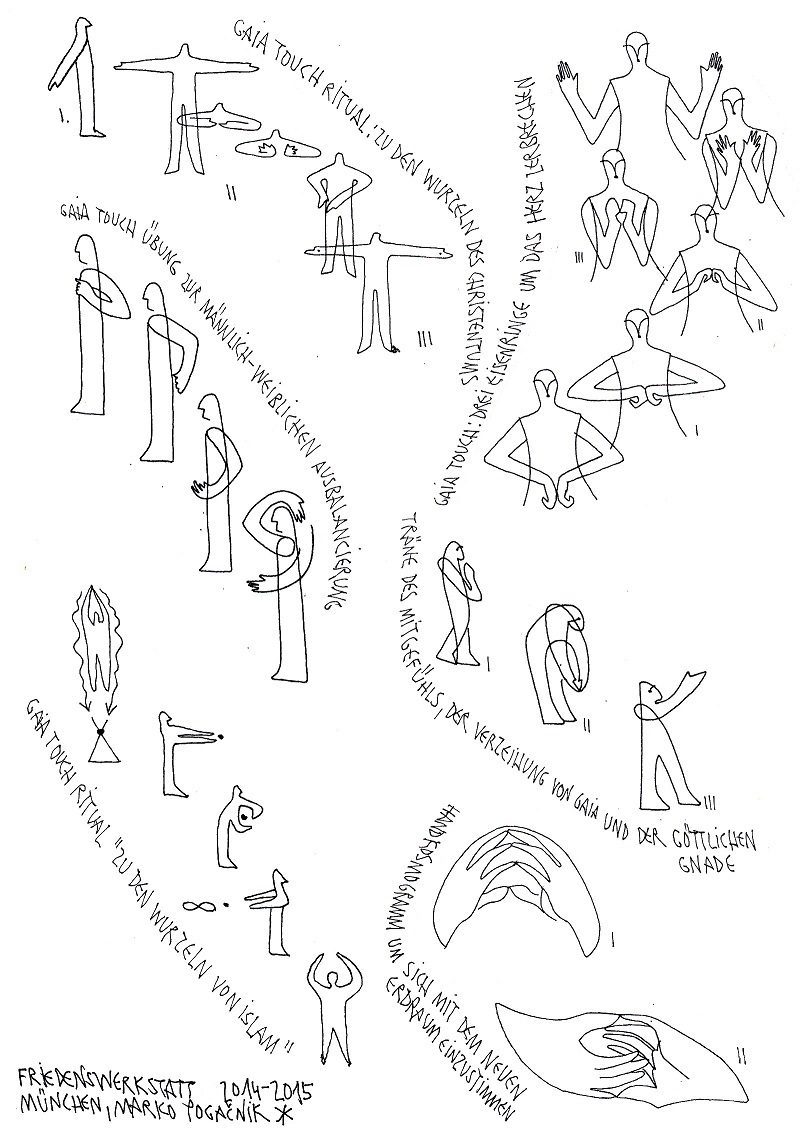 GAIA TOUCH RITUAL: ZU DEN WURZELN DES CHRISTENTUMS
I.
II
III
GAIA TOUCH: DREI EISENRINGE UM DAS HERZ ZERBRECHEN
III
II
I
GAIA TOUCH ÜBUNG ZUR MÄNNLICH-WEIBLICHEN AUSBALANCIERUNG
TRÄNE DES MITGEFÜHLS, DER VERZEIHUNG VON GAIA UND DER GÖTTLICHEN
GNADE
I
II
III
GAIA TOUCH RITUAL "ZU DEN WURZELN VON ISLAM"
HANDKOSMOGRAMM UM SICH MIT DEM NEUEN
ERDRAUM EINZUSTIMMEN
I
II
FRIEDENSWERKSTATT 2014-2015
MÜNCHEN, MARKO POGAČNIK